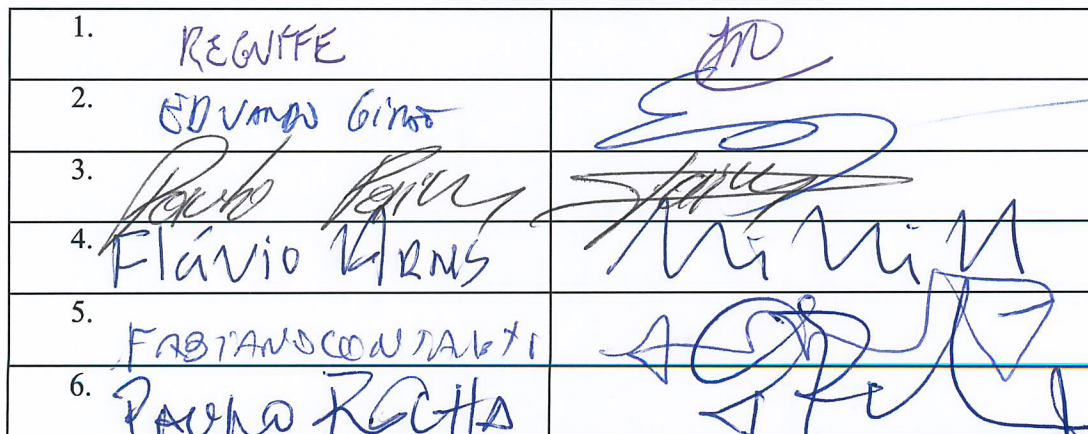 1. REGUFFE
2. EDUARDO GIRÃO
3. Paulo Paim
4. Flávio ARNS
5. FABIANO CONTARATO
6. PAULO ROCHA